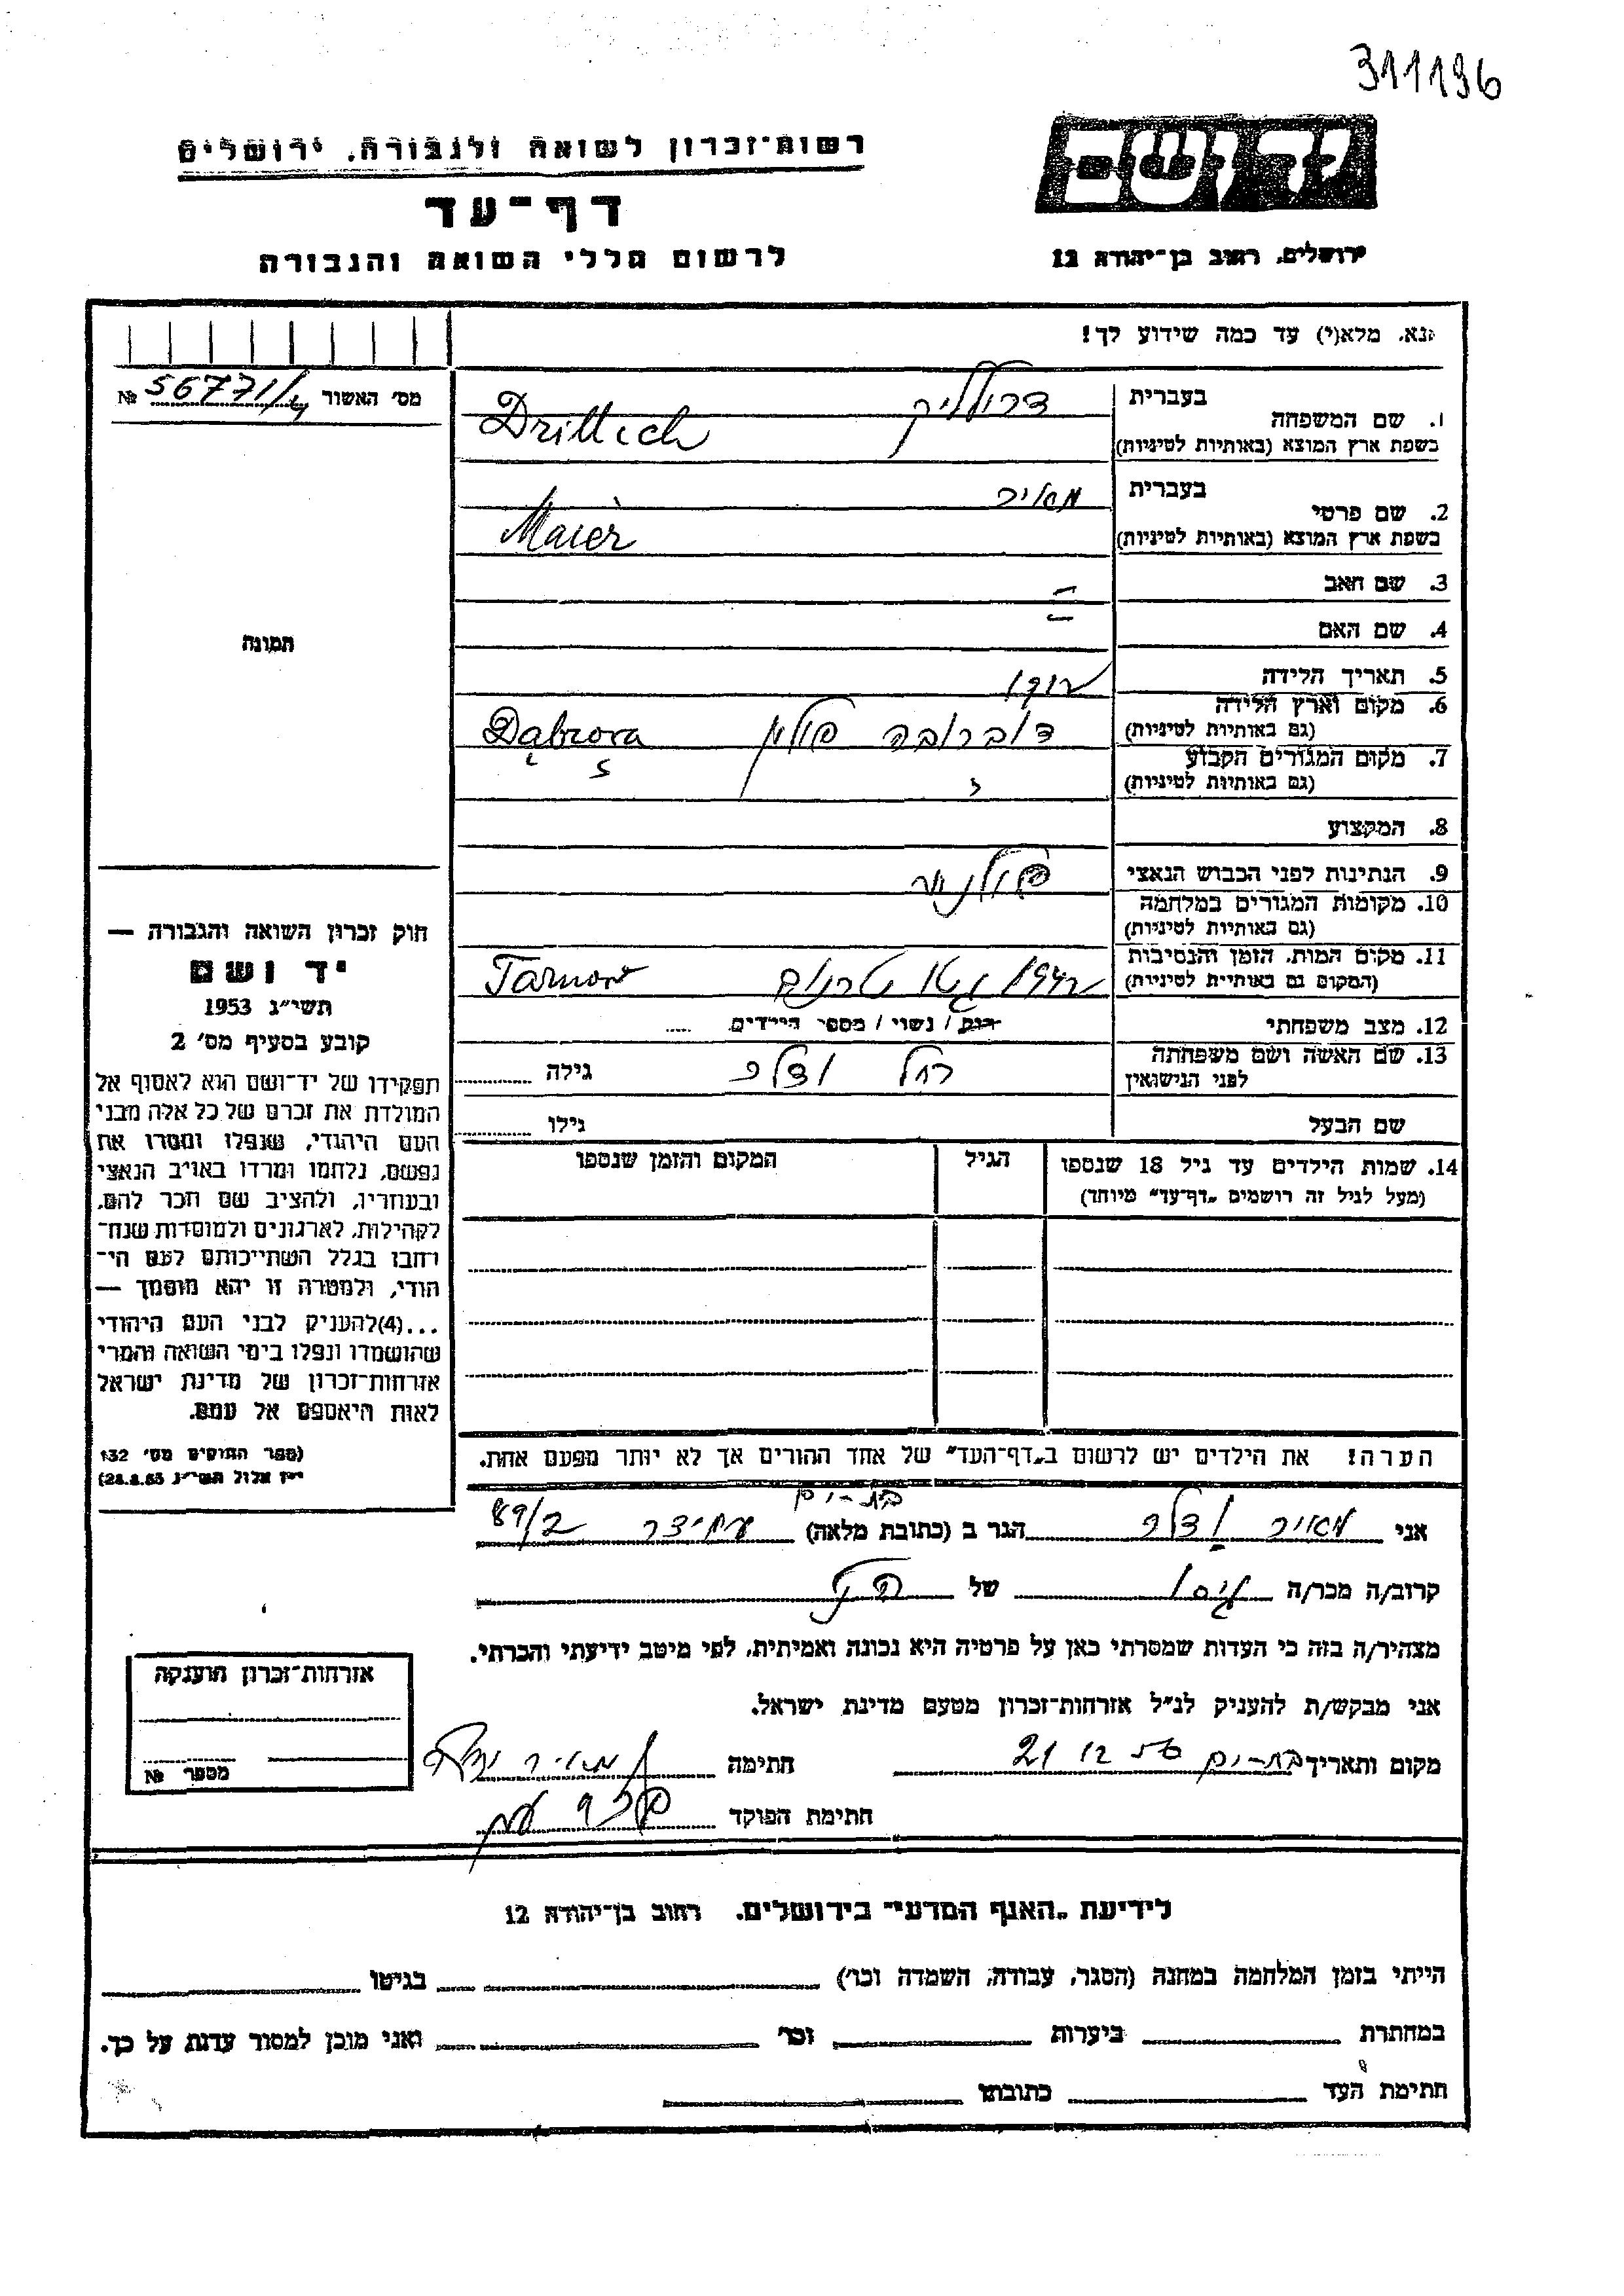 311196
רשות־זכרון לשואה ולגבורה, ירושלים
יד ושם
דף־עד
לרשום חללי השואה והגבורה
ירושלים, רחוב בן־יהודה 12
נא, מלא(י) עד כמה שידוע לך!
מס' האשור № 56771/4
1. שם המשפחה בעברית
Drillich דרילליך
בשפת ארץ המוצא (באותיות לטיניות)
בעברית מאיר
2. שם פרטי
בשפת ארץ המוצא (באותיות לטיניות) Maier
3. שם האב —
4. שם האם —
תמונה
5. תאריך הלידה
6. מקום וארץ הלידה
(גם באותיות לטיניות) דוברובה פולין Dąbrova
7. מקום המגורים הקבוע
(גם באותיות לטיניות)
8. המקצוע
9. הנתינות לפני הכבוש הנאצי פולנית
10. מקומות המגורים במלחמה
(גם באותיות לטיניות)
11. מקום המות, הזמן והנסיבות
(המקום גם באותיות לטיניות) 1942 גטו טרנוב Tarnow
12. מצב משפחתי רווק / נשוי / מספר הילדים
13. שם האשה ושם משפחתה
לפני הנישואין רחל גילה
שם הבעל גילו
14. שמות הילדים עד גיל 18 שנספו הגיל המקום והזמן שנספו
(מעל לגיל זה רושמים "דף־עד" מיוחד)
הערה! את הילדים יש לרשום ב"דף־העד" של אחד ההורים אך לא יותר מפעם אחת.
חוק זכרון השואה והגבורה —
יד ושם
תשי"ג 1953
קובע בסעיף מס' 2
תפקידו של יד־ושם הוא לאסוף אל
המולדת את זכרם של כל אלה מבני
העם היהודי, שנפלו ומסרו את
נפשם, נלחמו ומרדו באויב הנאצי
ובעוזריו, ולהציב שם וזכר להם,
לקהילות, לארגונים ולמוסדות שנח־
רבו בגלל השתייכותם לעם הי־
הודי, ולמטרה זו יהא מוסמך —
...(4)להעניק לבני העם היהודי
שהושמדו ונפלו בימי השואה והמרי
אזרחות־זכרון של מדינת ישראל
לאות היאספם אל עמם.
(ספר החוקים מס' 132
י"ז אלול תשי"ג 28.8.53)
בת־ים
אני מאיר הגר ב (כתובת מלאה) 89/2
קרוב/ה מכר/ה גיסו של
מצהיר/ה בזה כי העדות שמסרתי כאן על פרטיה היא נכונה ואמיתית, לפי מיטב ידיעתי והכרתי.
אני מבקש/ת להעניק לנ"ל אזרחות־זכרון מטעם מדינת ישראל.
מקום ותאריך בת־ים 21 12 חתימה מאיר
חתימת הפוקד
אזרחות־זכרון הוענקה
מספר №
לידיעת "האגף המדעי" בירושלים, רחוב בן־יהודה 12
הייתי בזמן המלחמה במחנה (הסגר, עבודה, השמדה וכו') בגיטו
במחתרת ביערות וכו' ואני מוכן למסור עדות על כך.
חתימת העד כתובתו